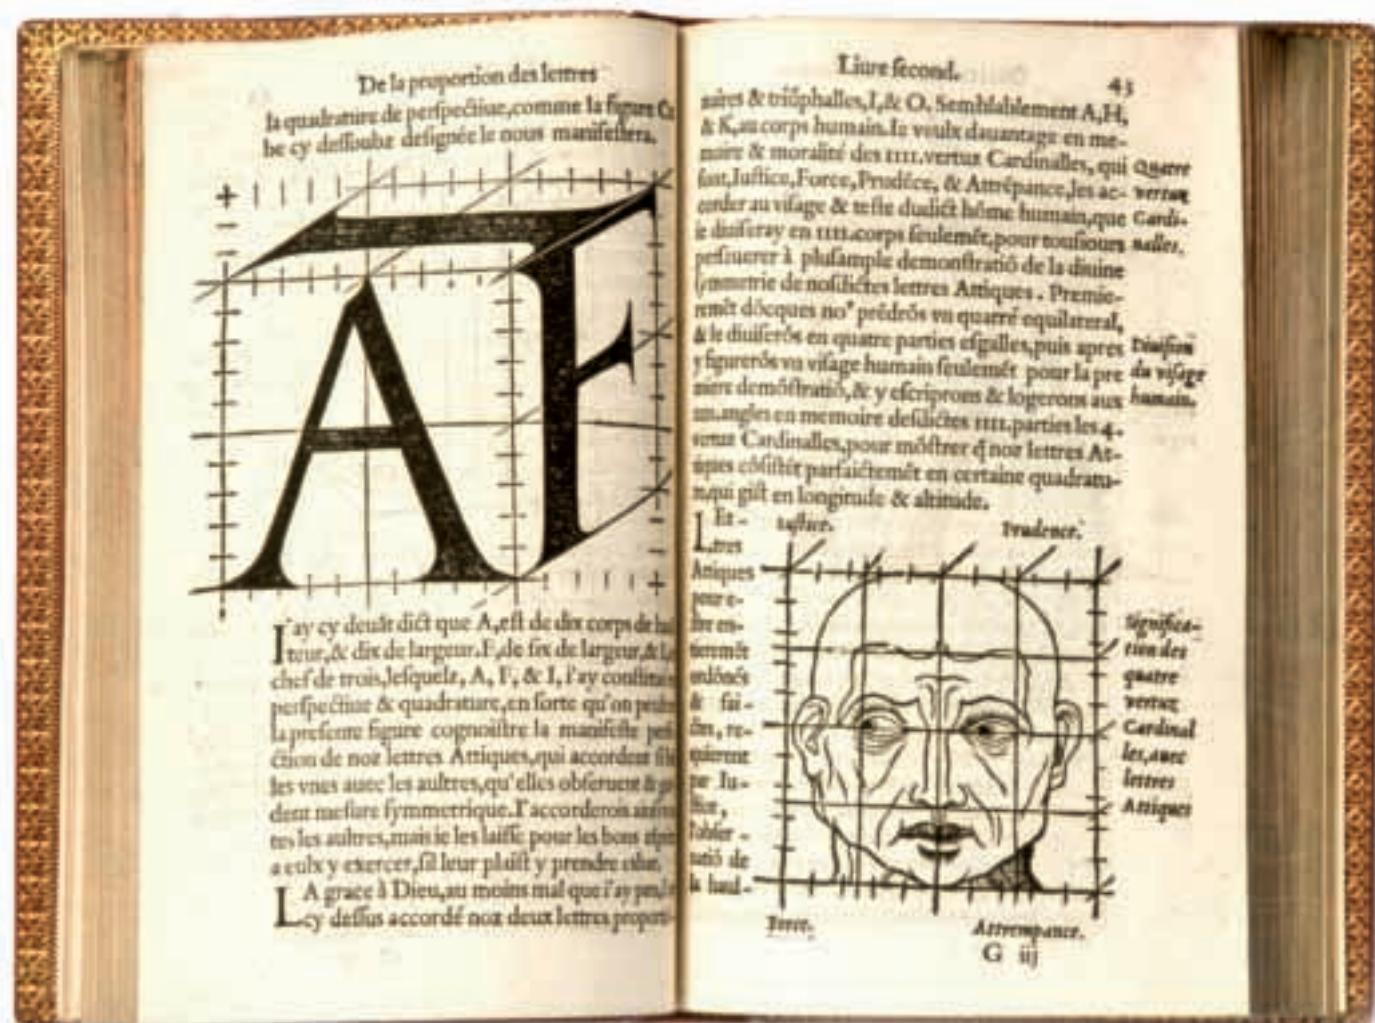 De la proportion des lettres
la quadrature de perſpectiue, comme la figure
be cy deſſoubz deſignée le nous manifeſtera.
A F
I'ay cy deuāt dict que A, eſt de dix corps de
teur, & dix de largeur. F, de ſix de largeur, &
chef de trois, leſquelz, A, F, & I, i'ay
perſpectiue & quadrature, en ſorte qu'on
la preſente figure cognoiſtre la manifeſte
ction de noz lettres Attiques, qui accordent
les vnes auec les aultres, qu'elles obſeruent &
dent meſure ſymmetrique. I'accorderois
tes les aultres, mais ie les laiſſe pour les bons
a eulx y exercer, ſil leur plaiſt y prendre
LA grace à Dieu, au moins mal que i'ay
cy deſſus accordé noz deux lettres
Liure ſecond.
43
naires & triūphalles, I, & O. Semblablement A, H,
& K, au corps humain. Ie veulx dauantage en me-
moire & moralité des IIII. vertuz Cardinalles, qui
ſont, Iuſtice, Force, Prudēce, & Attrēpance, les ac-
corder au viſage & teſte dudict hōme humain, que
ie diuiſeray en IIII. corps ſeulemēt, pour touſiours
perſeuerer à pluſample demonſtratiō de la diuine
ſymmetrie de noſdictes lettres Attiques. Premie-
remēt dōcques no⁹ prēdrōs vn quarré equilateral,
& le diuiſerōs en quatre parties eſgalles, puis apres
y figurerōs vn viſage humain ſeulemēt pour la pre
miere demōſtratiō, & y eſcriprons & logerons aux
IIII. angles en memoire deſdictes IIII. parties les 4.
vertuz Cardinalles, pour mōſtrer q̄ noz lettres At-
tiques cōſiſtēt parfaictemēt en certaine quadratu-
re, qui giſt en longitude & altitude.
Quatre
vertuz
Cardi-
nalles.
Diuiſion
du viſage
humain.
LEt-
tres
Attiques
pour e-
ſtre en-
tieremēt
ordōnés
& fai-
ctes, re-
quierent
par Iu-
ſtice,
l'obſer-
uatiō de
la haul-
Iuſtice.
Prudence.
Force.
Attrempance.
Significa-
tion des
quatre
vertuz
Cardinal
les, auec
lettres
Attiques
G iij